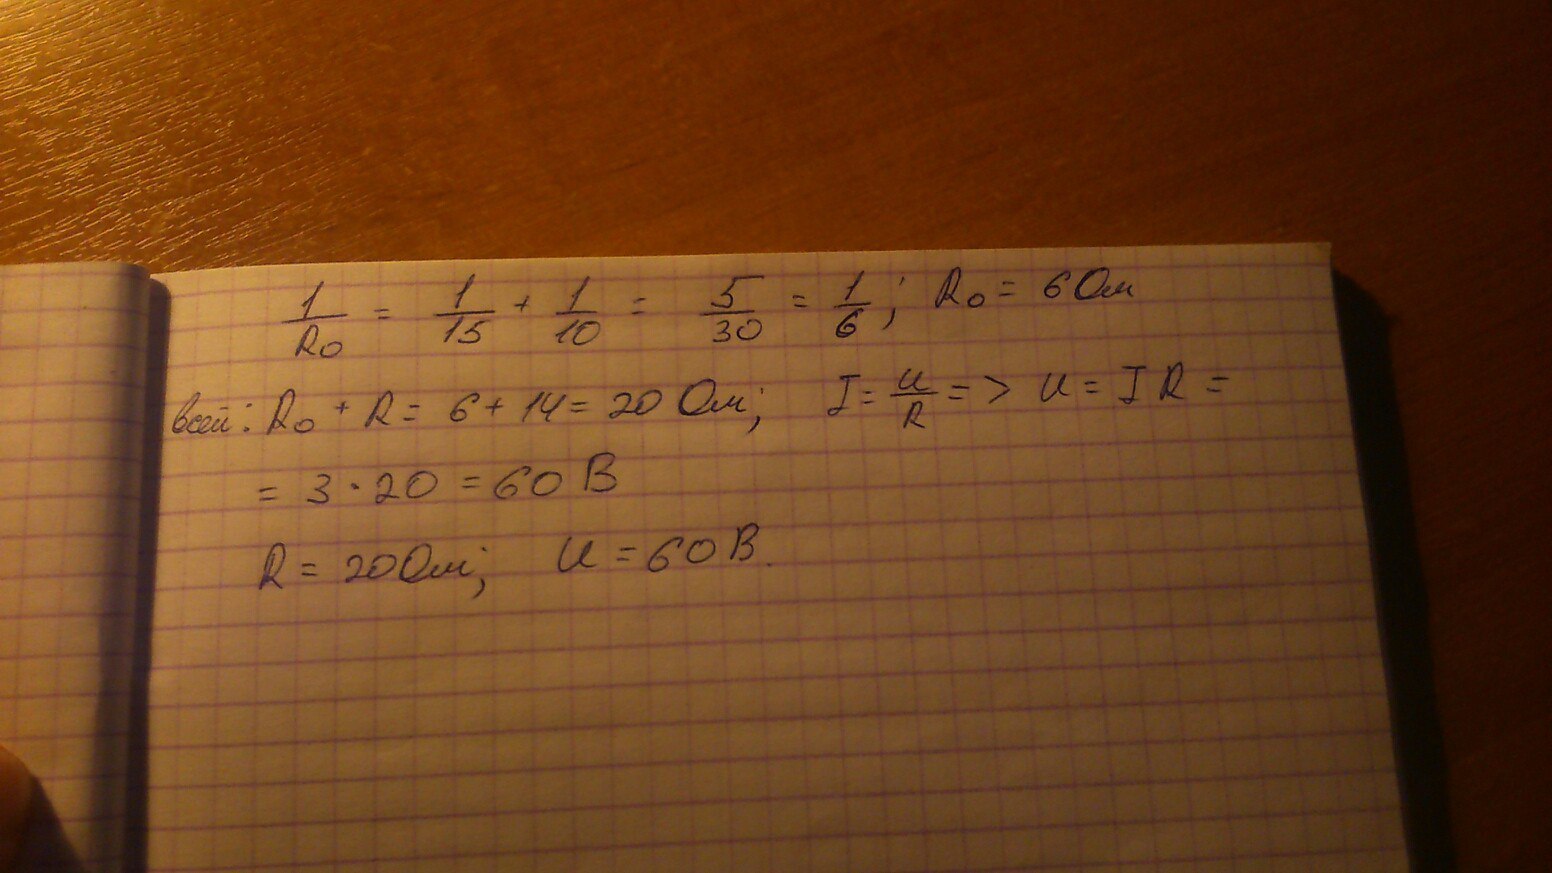 1/R₀ = 1/15 + 1/10 = 5/30 = 1/6; R₀ = 6 Ом
всей: R₀ + R = 6 + 14 = 20 Ом; I = U/R => U = I R =
= 3 · 20 = 60 В
R = 20 Ом; U = 60 В.